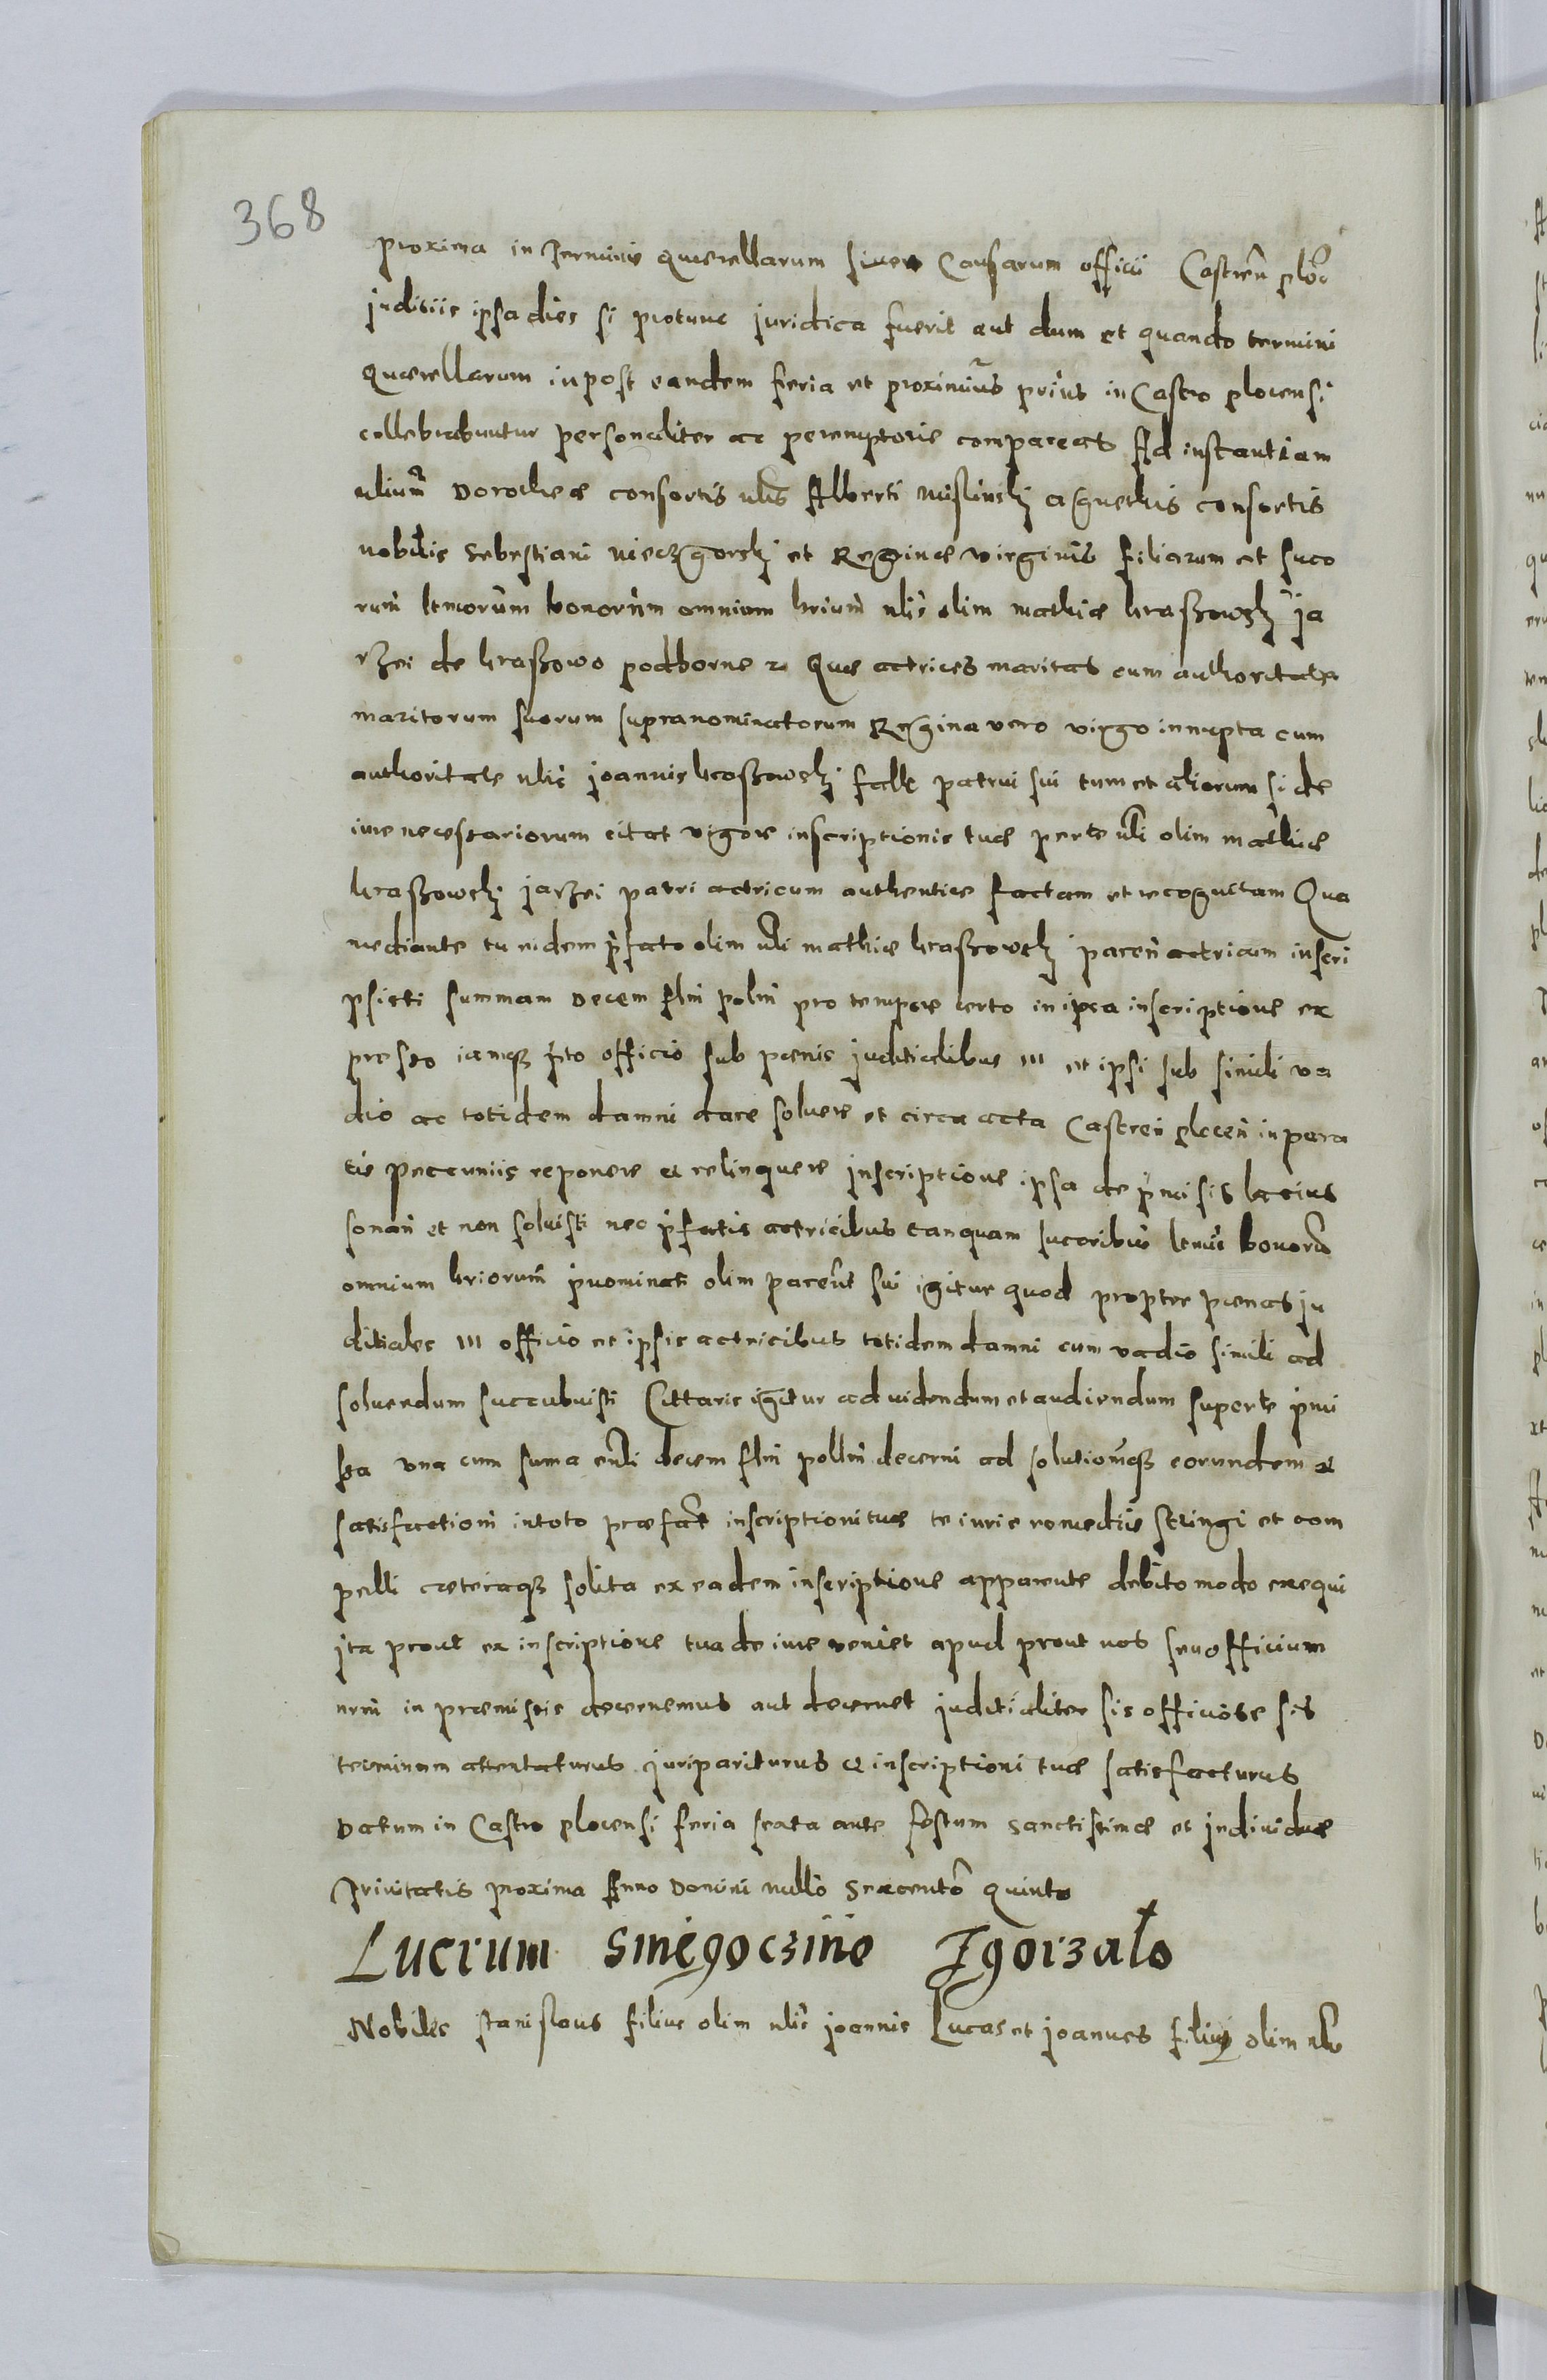 368
proxima in Terminis querellarum sive Causarum officii Castren ploc
juditiis ipsa dies si protunc juridica fuerit aut dum et quando termini
Querellarum in post eandem feria et proximius prius in Castro plocensi
cellebrabuntur personaliter ac peremptorie compareas Ad instantiam
nlium Dorotheæ consortis nlis Alberti Mislinskj Agnethis consortis
nobilis Sebestiani nieczgorskj et Reginæ virginis filiarum et succo
rum lmorum bonorum omnium hrium nlis olim mathiæ kraskowskj ja
rzei de kraskowo podborne Quæ actrices maritas cum authoritate
maritorum suorum supranominatorum Regina vero virgo innupta cum
authoritate nlis joannis kroskowskj patrui sui tum et aliorum si de
iure necessariorum citat vigore inscriptionis tuæ per te nli olim mathiæ
kraskowskj jarzei patri actricum authentice factam et recognitam Qua
mediante tu eidem pfato olim nli mathiæ kraskowskj paren actricum inscri
psisti summam Decem flni polni pro tempore certo in ipsa inscriptione ex
presso iamqz pto officio sub pænis juditialibus III et ipsi sub simili va
dio ac totidem damni dare solvere et circa acta Castren plocen in para
tis peccuniis reponere et relinquere inscriptione ipsa de pmisis lacius
sonan et non solvisti nec pfatis actricibus tanquam sucoribus lmis bonoru
omnium hriorum pnominati olim parent sui igitur quod propter pænas ju
ditiales III officio et ipsis actricibus totidem damni cum vadio simili ad
solvendum succubuisti Cittaris igitur ad videndum et audiendum super te pmi
ssa una cum suma decem flni pollni decerni ad solutiomqz eorundem et
satisfactioni in toto præfat inscriptioni tuæ te iuris remediis stringi et com
pelli cæteraqz solita ex eadem inscriptione apparente debito modo exequi
jta prout ex inscriptione tua de iure veniet apud prout nos seu officium
nrm in præmissis decernemus aut decernet juditialiter sis officiose sis
terminum attentaturus juripariturus et inscriptioni tuæ satisfacturus
Datum in Castro plocensi feria sexta ante festum sanctissimæ et individuæ
Trinitatis proxima Anno Domini millo Sexcento Quinto
Lucrum Smegoczino Zgorzało
Nobiles stanislaus filius olim nlis joannis Lucas et joannes filius olim nlis